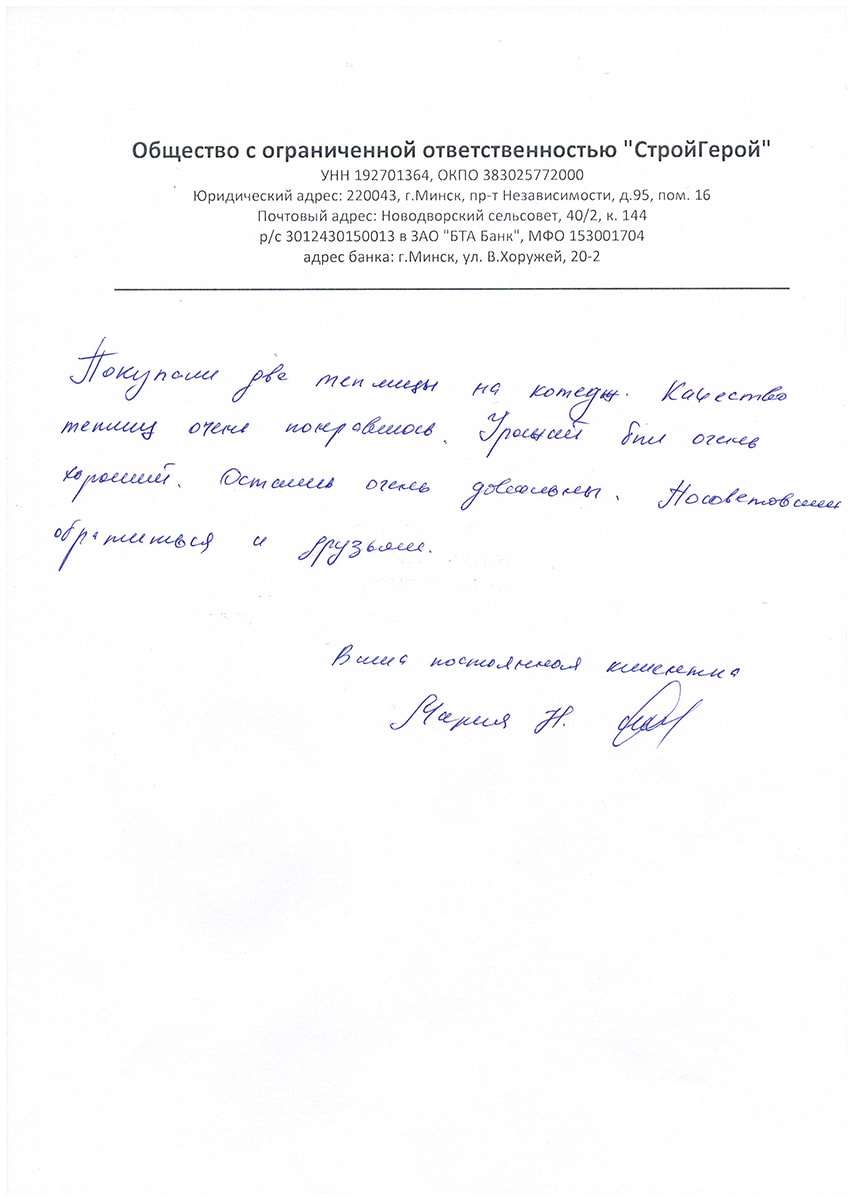 Общество с ограниченной ответственностью "СтройГерой"
УНН 192701364, ОКПО 383025772000
Юридический адрес: 220043, г.Минск, пр-т Независимости, д.95, пом. 16
Почтовый адрес: Новодворский сельсовет, 40/2, к. 144
р/с 3012430150013 в ЗАО "БТА Банк", МФО 153001704
адрес банка: г.Минск, ул. В.Хоружей, 20-2
Покупали две теплицы на котедж. Качество
теплиц очень понравилось. Урожай был очень
хороший. Остались очень довольны. Посоветовали
обратиться и друзьям.
Ваша постоянная клиентка
Мария Н.